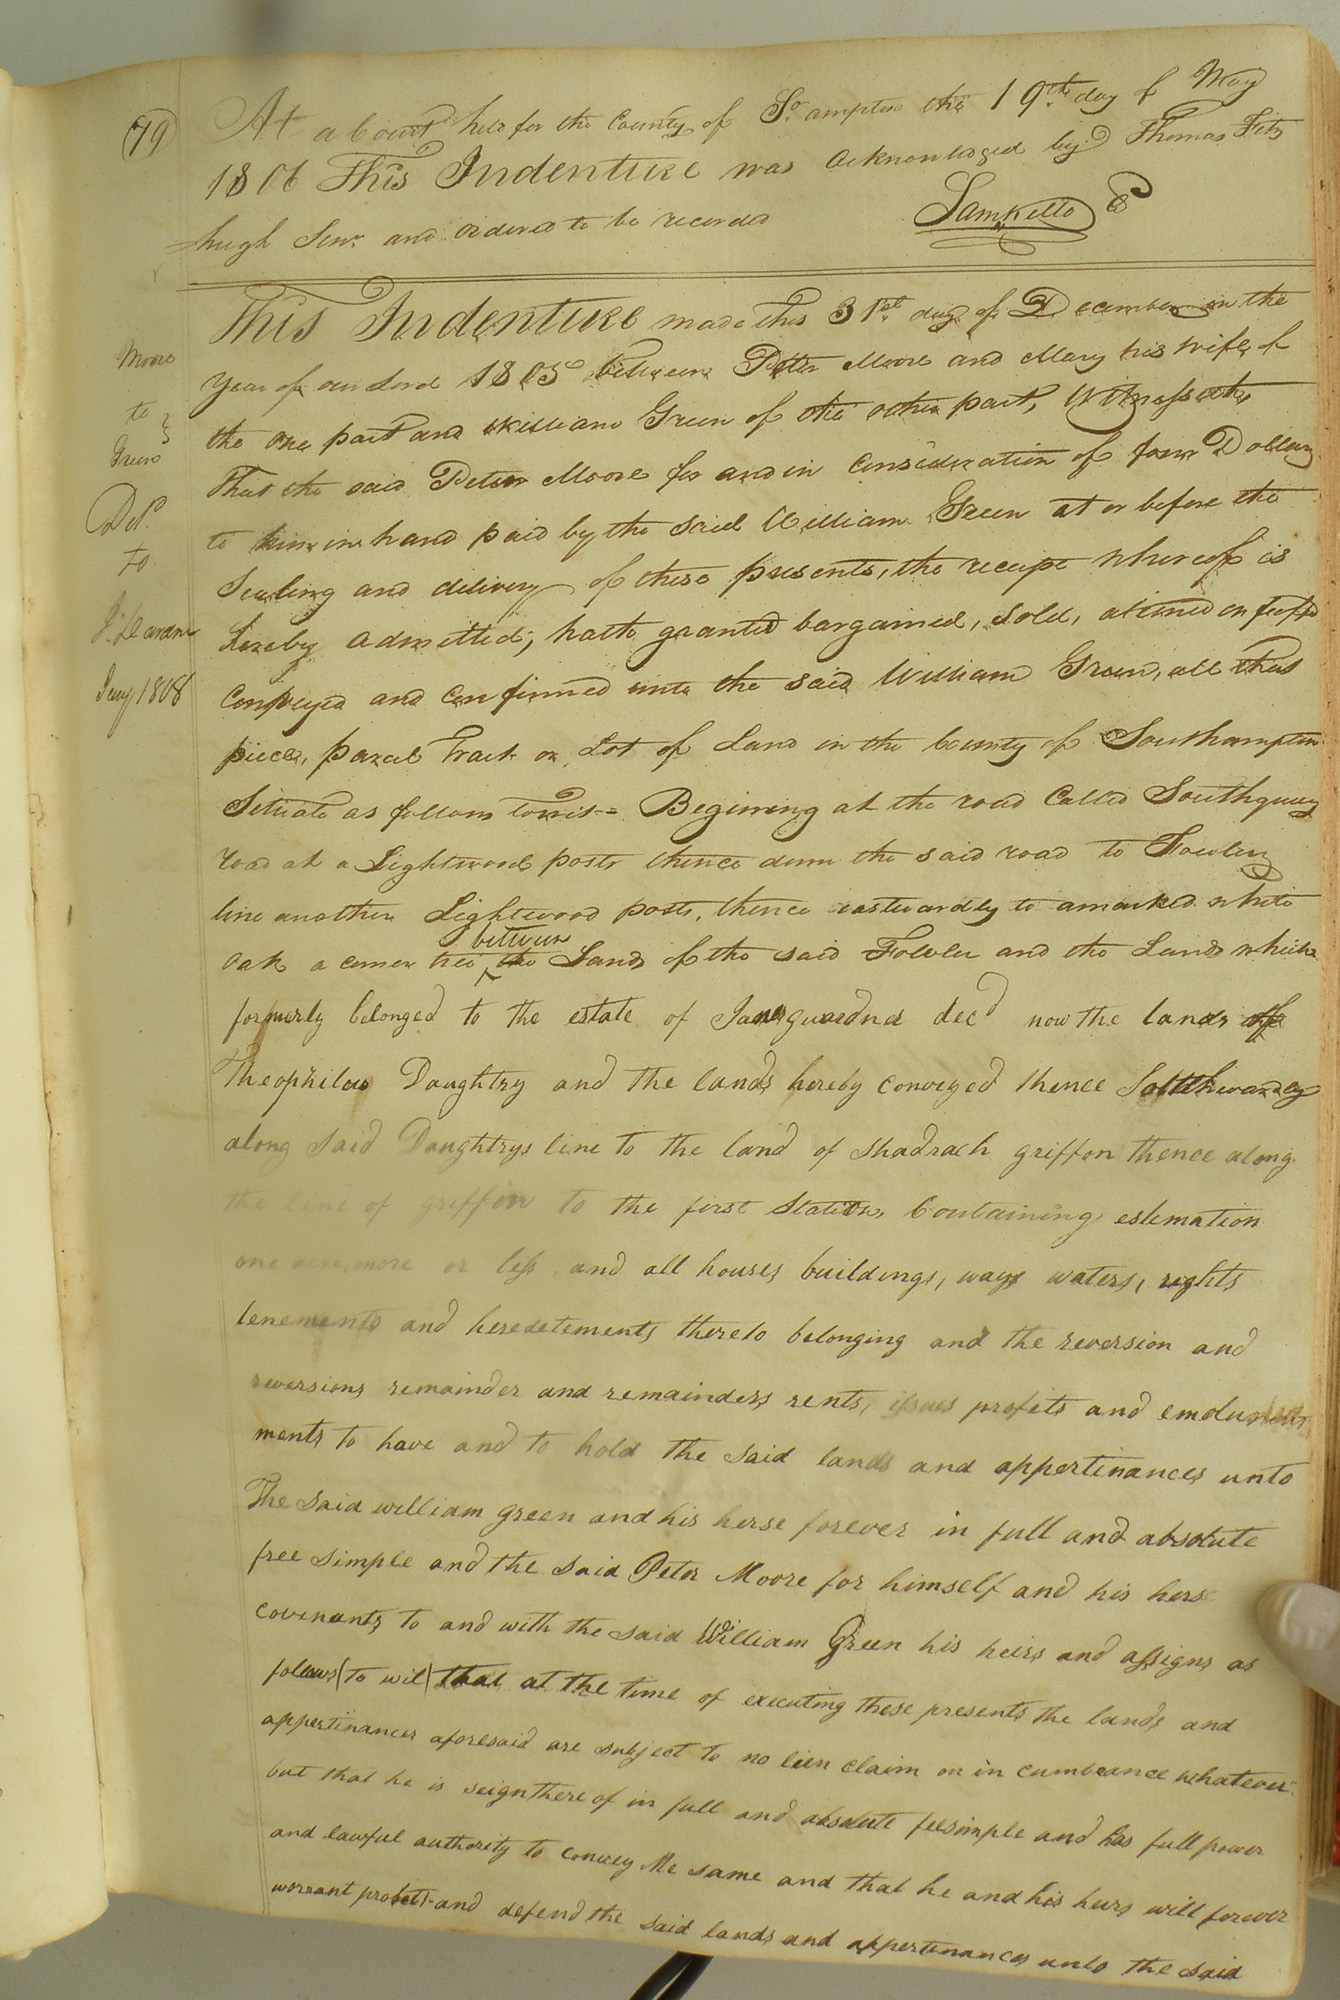 79
At a Court held for the County of So.ampton the 19th. day of May
1806 This Indenture was Acknowledged by Thomas Fitz
hugh Senr. and ordered to be recorded
Saml Kello C
Moore
to
Green
Deld.
to
Jany 1808
This Indenture made this 31st. day of December in the
Year of our Lord 1805 between Peter Moore and Mary his wife of
the one part and William Green of the other part, Witnesseth,
That the said Peter Moore for and in Consideration of four Dollars
to him in hand paid by the said William Green at or before the
Sealing and delivery of these presents, the receipt whereof is
hereby admitted; hath granted bargained, Sold, aliened enfeoff'd
Conveyed and Confirmed unto the said William Green, all that
piece, parcel Tract or Lot of Land in the County of Southampton
Situate as follows towit = Begining at the road Called Southquay
road at a Lightwood posts thence down the said road to Fowlers
line another Lightwood posts, thence eastwardly to a marked white
Oak a corner tree between the Lands of the said Fowler and the Lands which
formerly belonged to the estate of guardner decd now the lands of
Theophilus Daughtry and the lands hereby conveyed thence Southwardly
along said Daughtrys line to the land of shadrach griffon thence along
the line of griffin to the first Station, Containing estemation
one acre more or less and all houses buildings, ways waters, rights
tenements and heredetements thereto belonging and the reversion and
reversions remainder and remainders rents, issues profits and emolument
ments to have and to hold the said lands and appertinances unto
The said william green and his herse forever in full and absolute
free simple and the said Peter Moore for himself and his herse
covenants to and with the said William Green his heirs and assigns as
follows (to wit) that at the time of executing these presents the lands and
appertinances aforesaid are subject to no lien claim on in cumbrance whatever
but that he is seign there of in full and absolute feesimple and has full power
and lawful authority to convey the same and that he and his heirs will forever
warrant protect and defend the said lands and appertinances unto the said